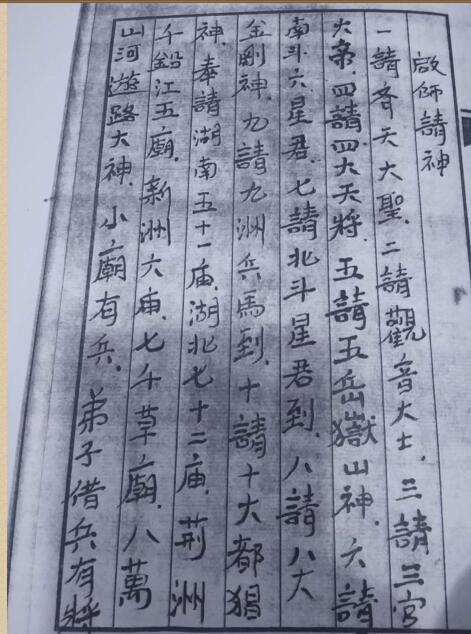 啟師請神
一請齐天大聖.二請觀音大士.三請三官
大帝.四請四大天将.五請五岳嶽山神.六請
南斗六星君.七請北斗星君到.八請八大
金剛神.九請九洲兵馬到.十請十大都猖
神.奉請湖南五十一庙.湖北七十二庙.荊洲
千鉛江五廟.新洲六庙.七千草廟.八萬
山河遊路大神.小廟有兵.弟子借兵有将